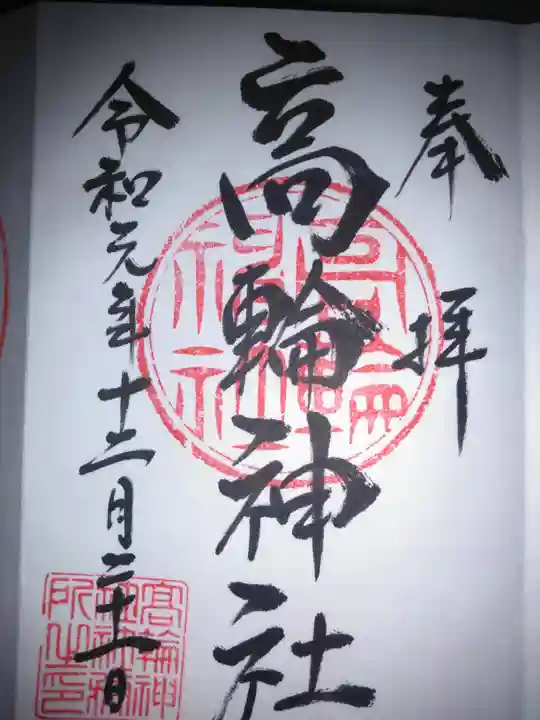 奉拝
高輪神社
令和元年十二月二十一日
高輪神社
高輪神社社務所之印